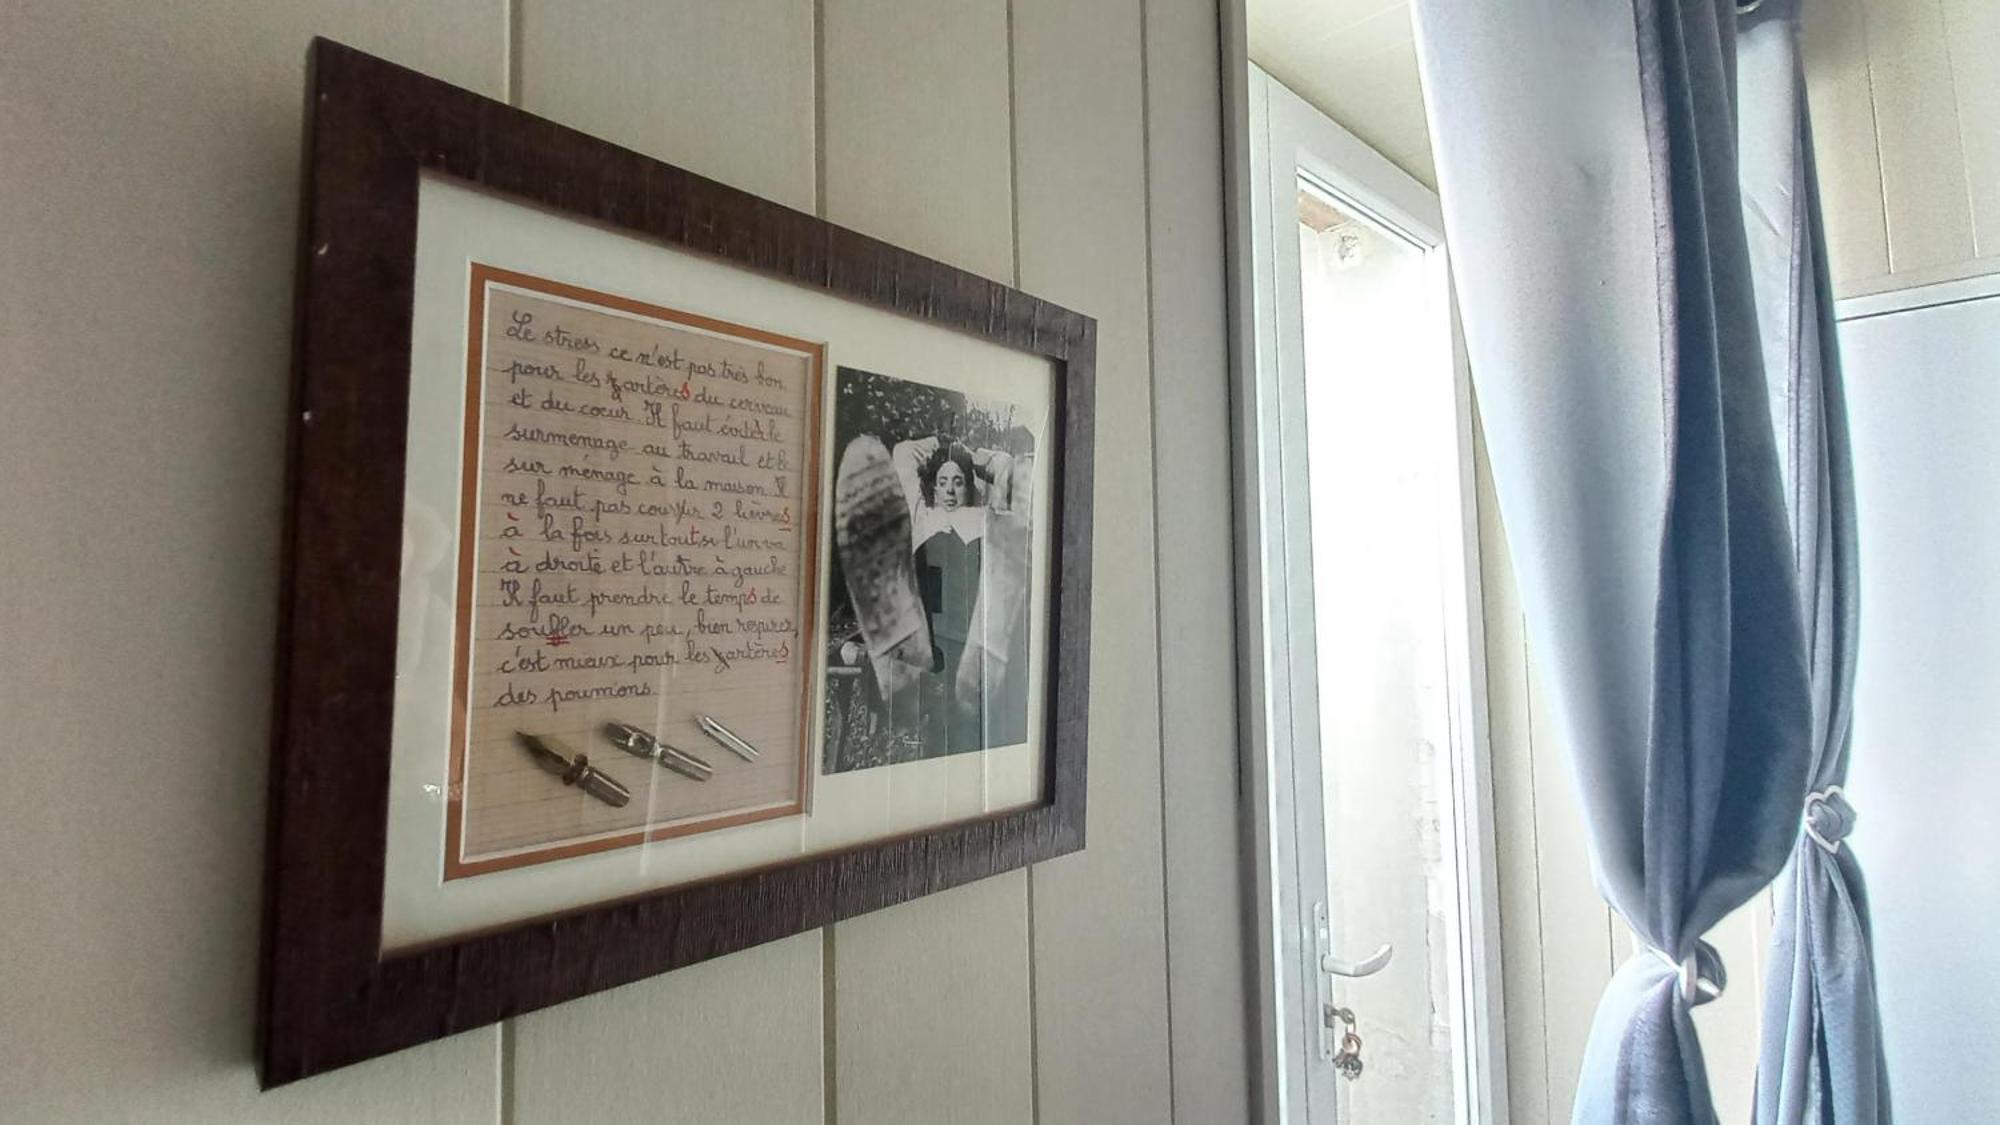 Le stress ce n'est pas très bon
pour les zartères du cerveau
et du coeur. Il faut éviter le
surmenage au travail et le
sur ménage à la maison. Il
ne faut pas courir 2 lièvres
à la fois surtout si l'un va
à droite et l'autre à gauche
Il faut prendre le temps de
souffler un peu, bien respirer,
c'est mieux pour les zartères
des poumons.